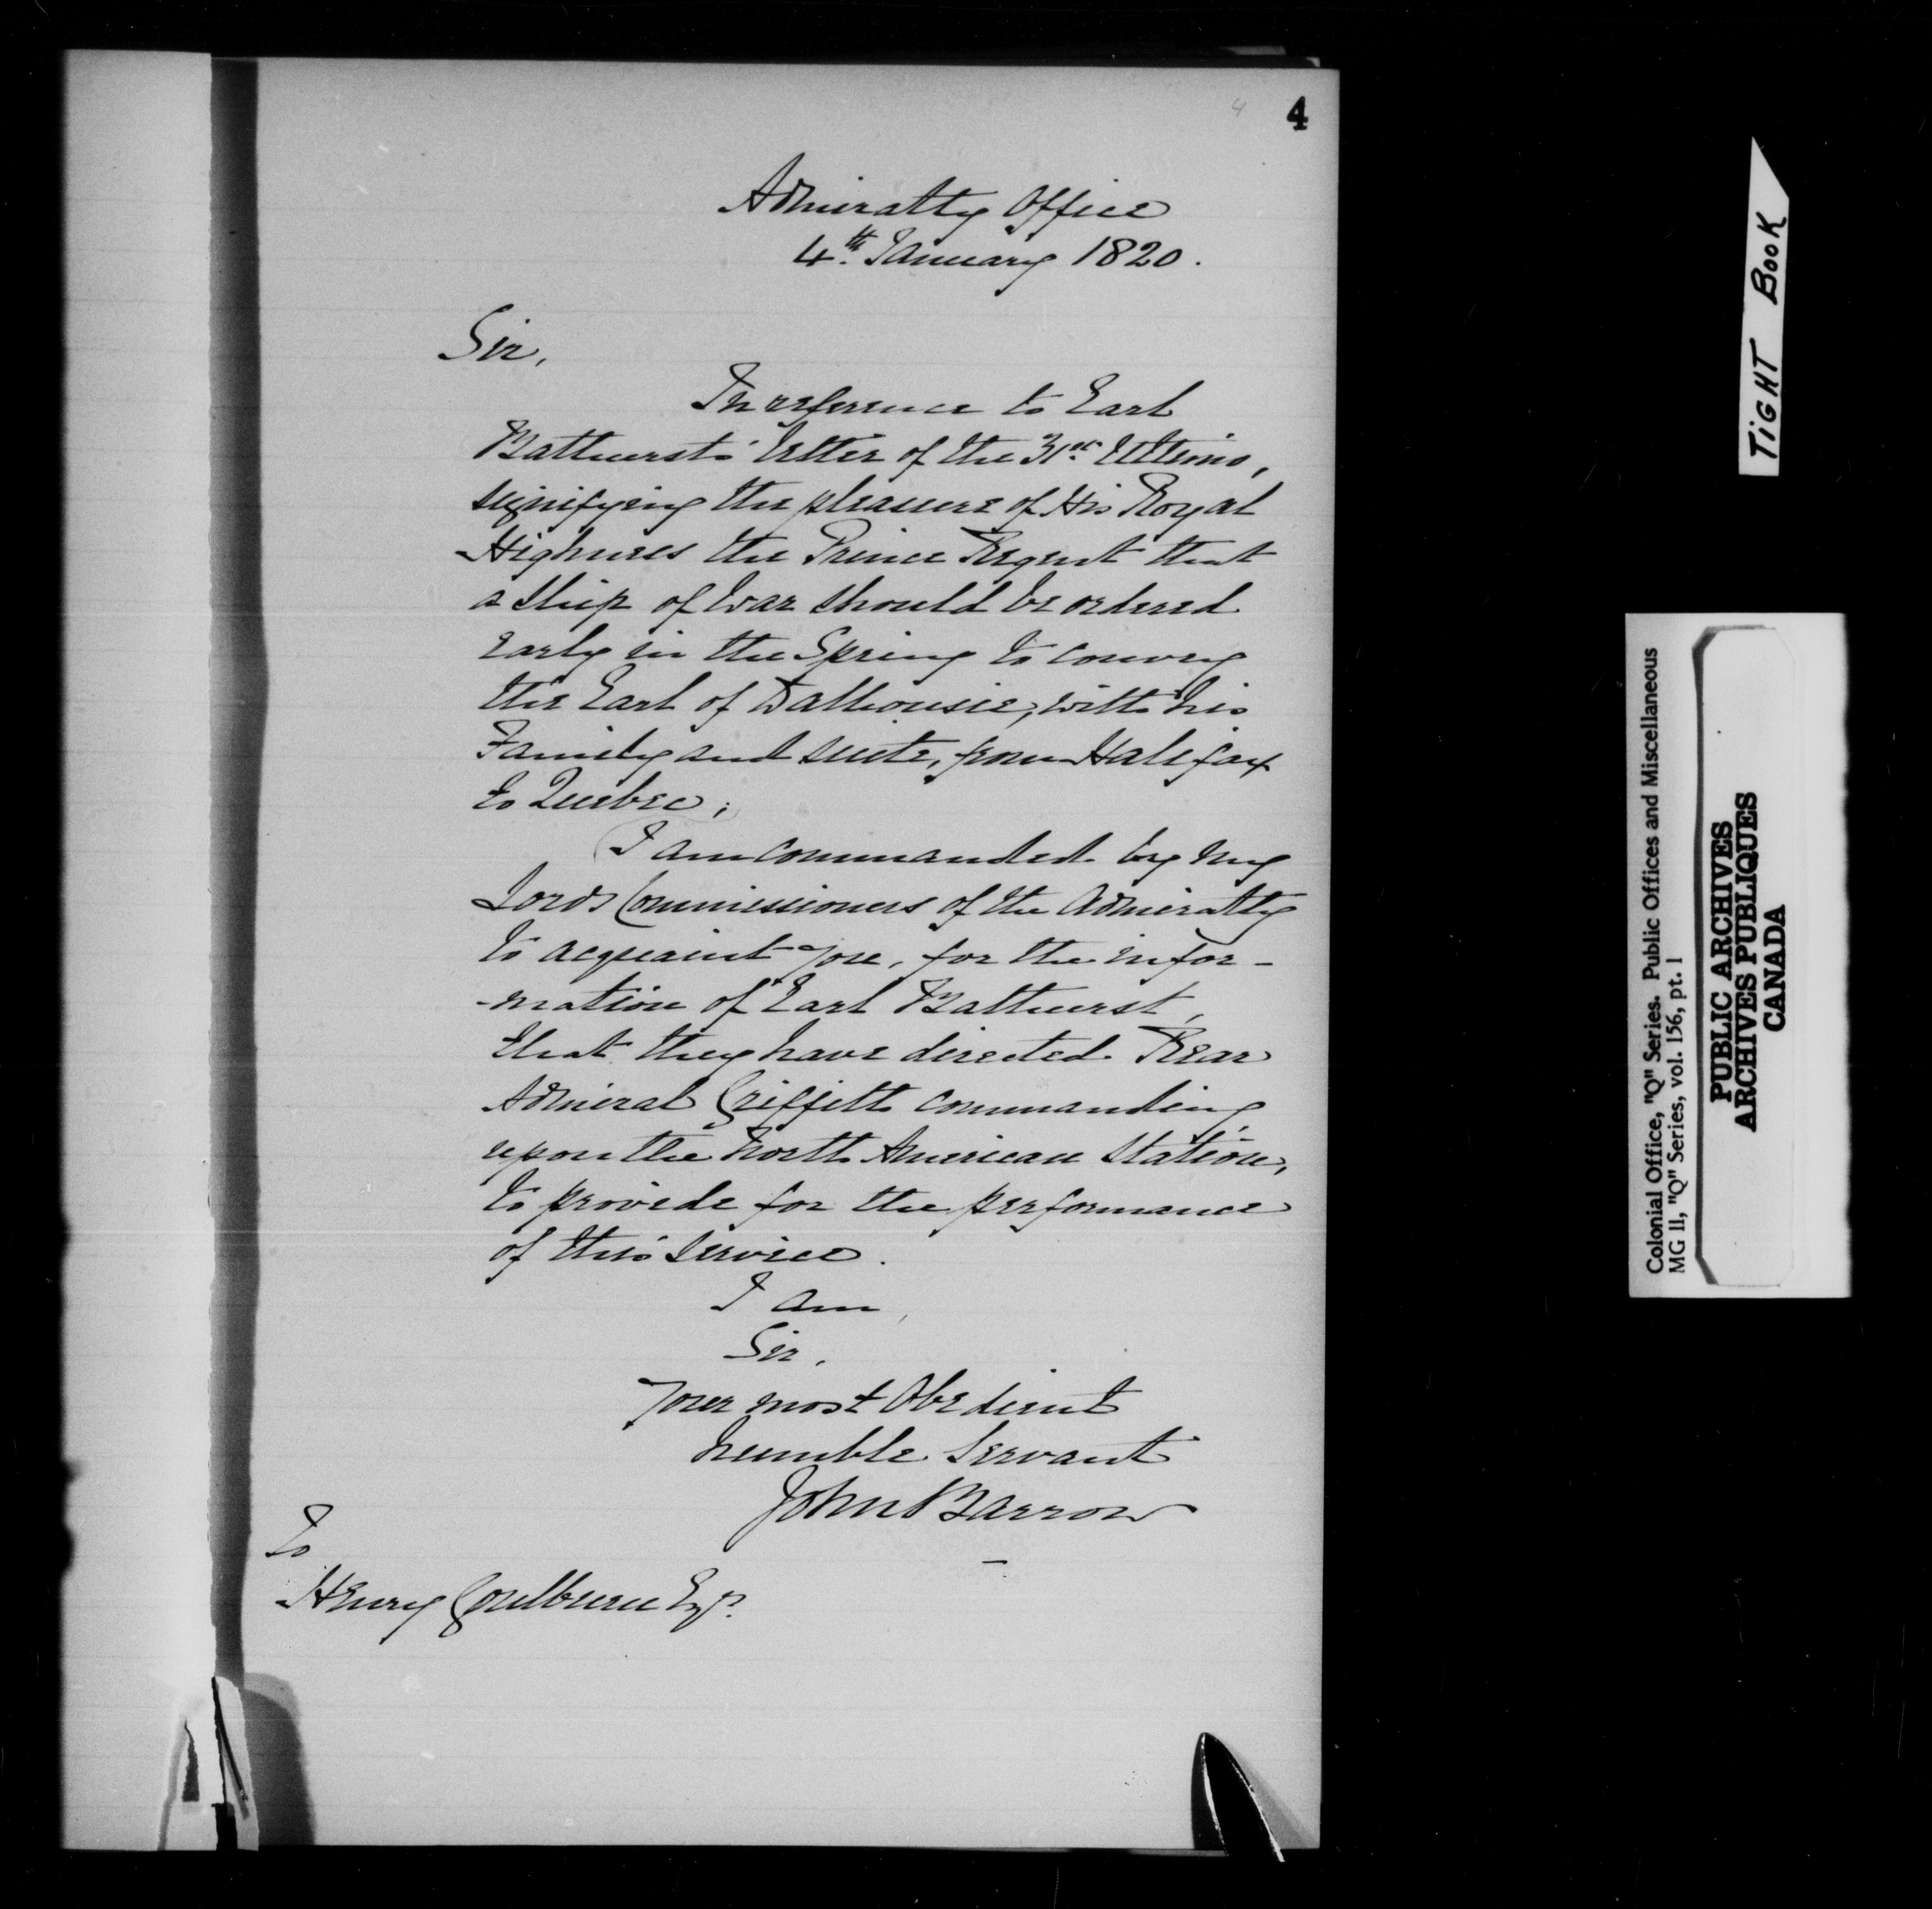 4
4
Admiralty Office
4th. January 1820.
Sir,
In reference to Earl
Bathurst's letter of the 31st. Ultimo,
signifying the pleasure of His Royal
Highness the Prince Regent that
a Ship of War should be ordered
early in the Spring to convey
the Earl of Dalhousie, with his
Family and suite, from Halifax
to Quebec;
I am commanded by my
Lords Commissioners of the Admiralty
to acquaint you, for the infor-
-mation of Earl Bathurst,
that they have directed Rear
Admiral Griffith commanding
upon the North American Station,
to provide for the performance
of this service.
I am,
Sir,
Your most Obedient
humble Servant
John Barrow
To
Henry Goulburn Esqr.
TIGHT BOOK
Colonial Office, "Q" Series. Public Offices and Miscellaneous
MG 11, "Q" Series, vol. 156, pt. 1
PUBLIC ARCHIVES
ARCHIVES PUBLIQUES
CANADA